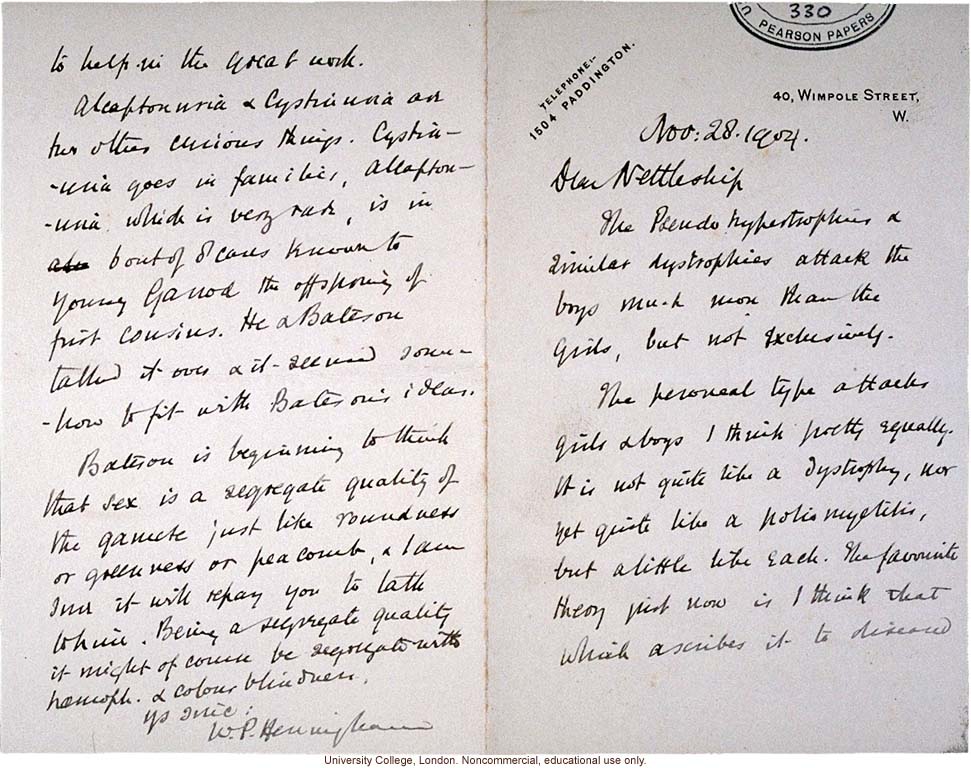 to help in the great work.
Alcaptonuria & Cystinuria are
two other curious things. Cystin-
-uria goes in families, Alcapton-
-uria which is very rare, is in
6 out of 8 cases known to
young Garrod the offspring of
first cousins. He & Bateson
talked it over & it seemed some-
-how to fit with Bateson's ideas.
Bateson is beginning to think
that sex is a segregate quality of
the gamete just like roundness
or greenness or peacomb, & I am
sure it will repay you to talk
to him. Being a segregate quality
it might of course be segregate with
haemoph. & colour blindness.
yrs sinc:
W.P. Herringham
330
PEARSON PAPERS
TELEPHONE:-
1504 PADDINGTON.
40, WIMPOLE STREET,
W.
Nov: 28. 1904.
Dear Nettleship
The Pseudo hypertrophies &
similar dystrophies attack the
boys much more than the
girls, but not exclusively.
The peroneal type attacks
girls & boys I think pretty equally.
It is not quite like a dystrophy, nor
yet quite like a poliomyelitis,
but a little like each. The favourite
theory just now is I think that
which ascribes it to diseased
University College, London. Noncommercial, educational use only.